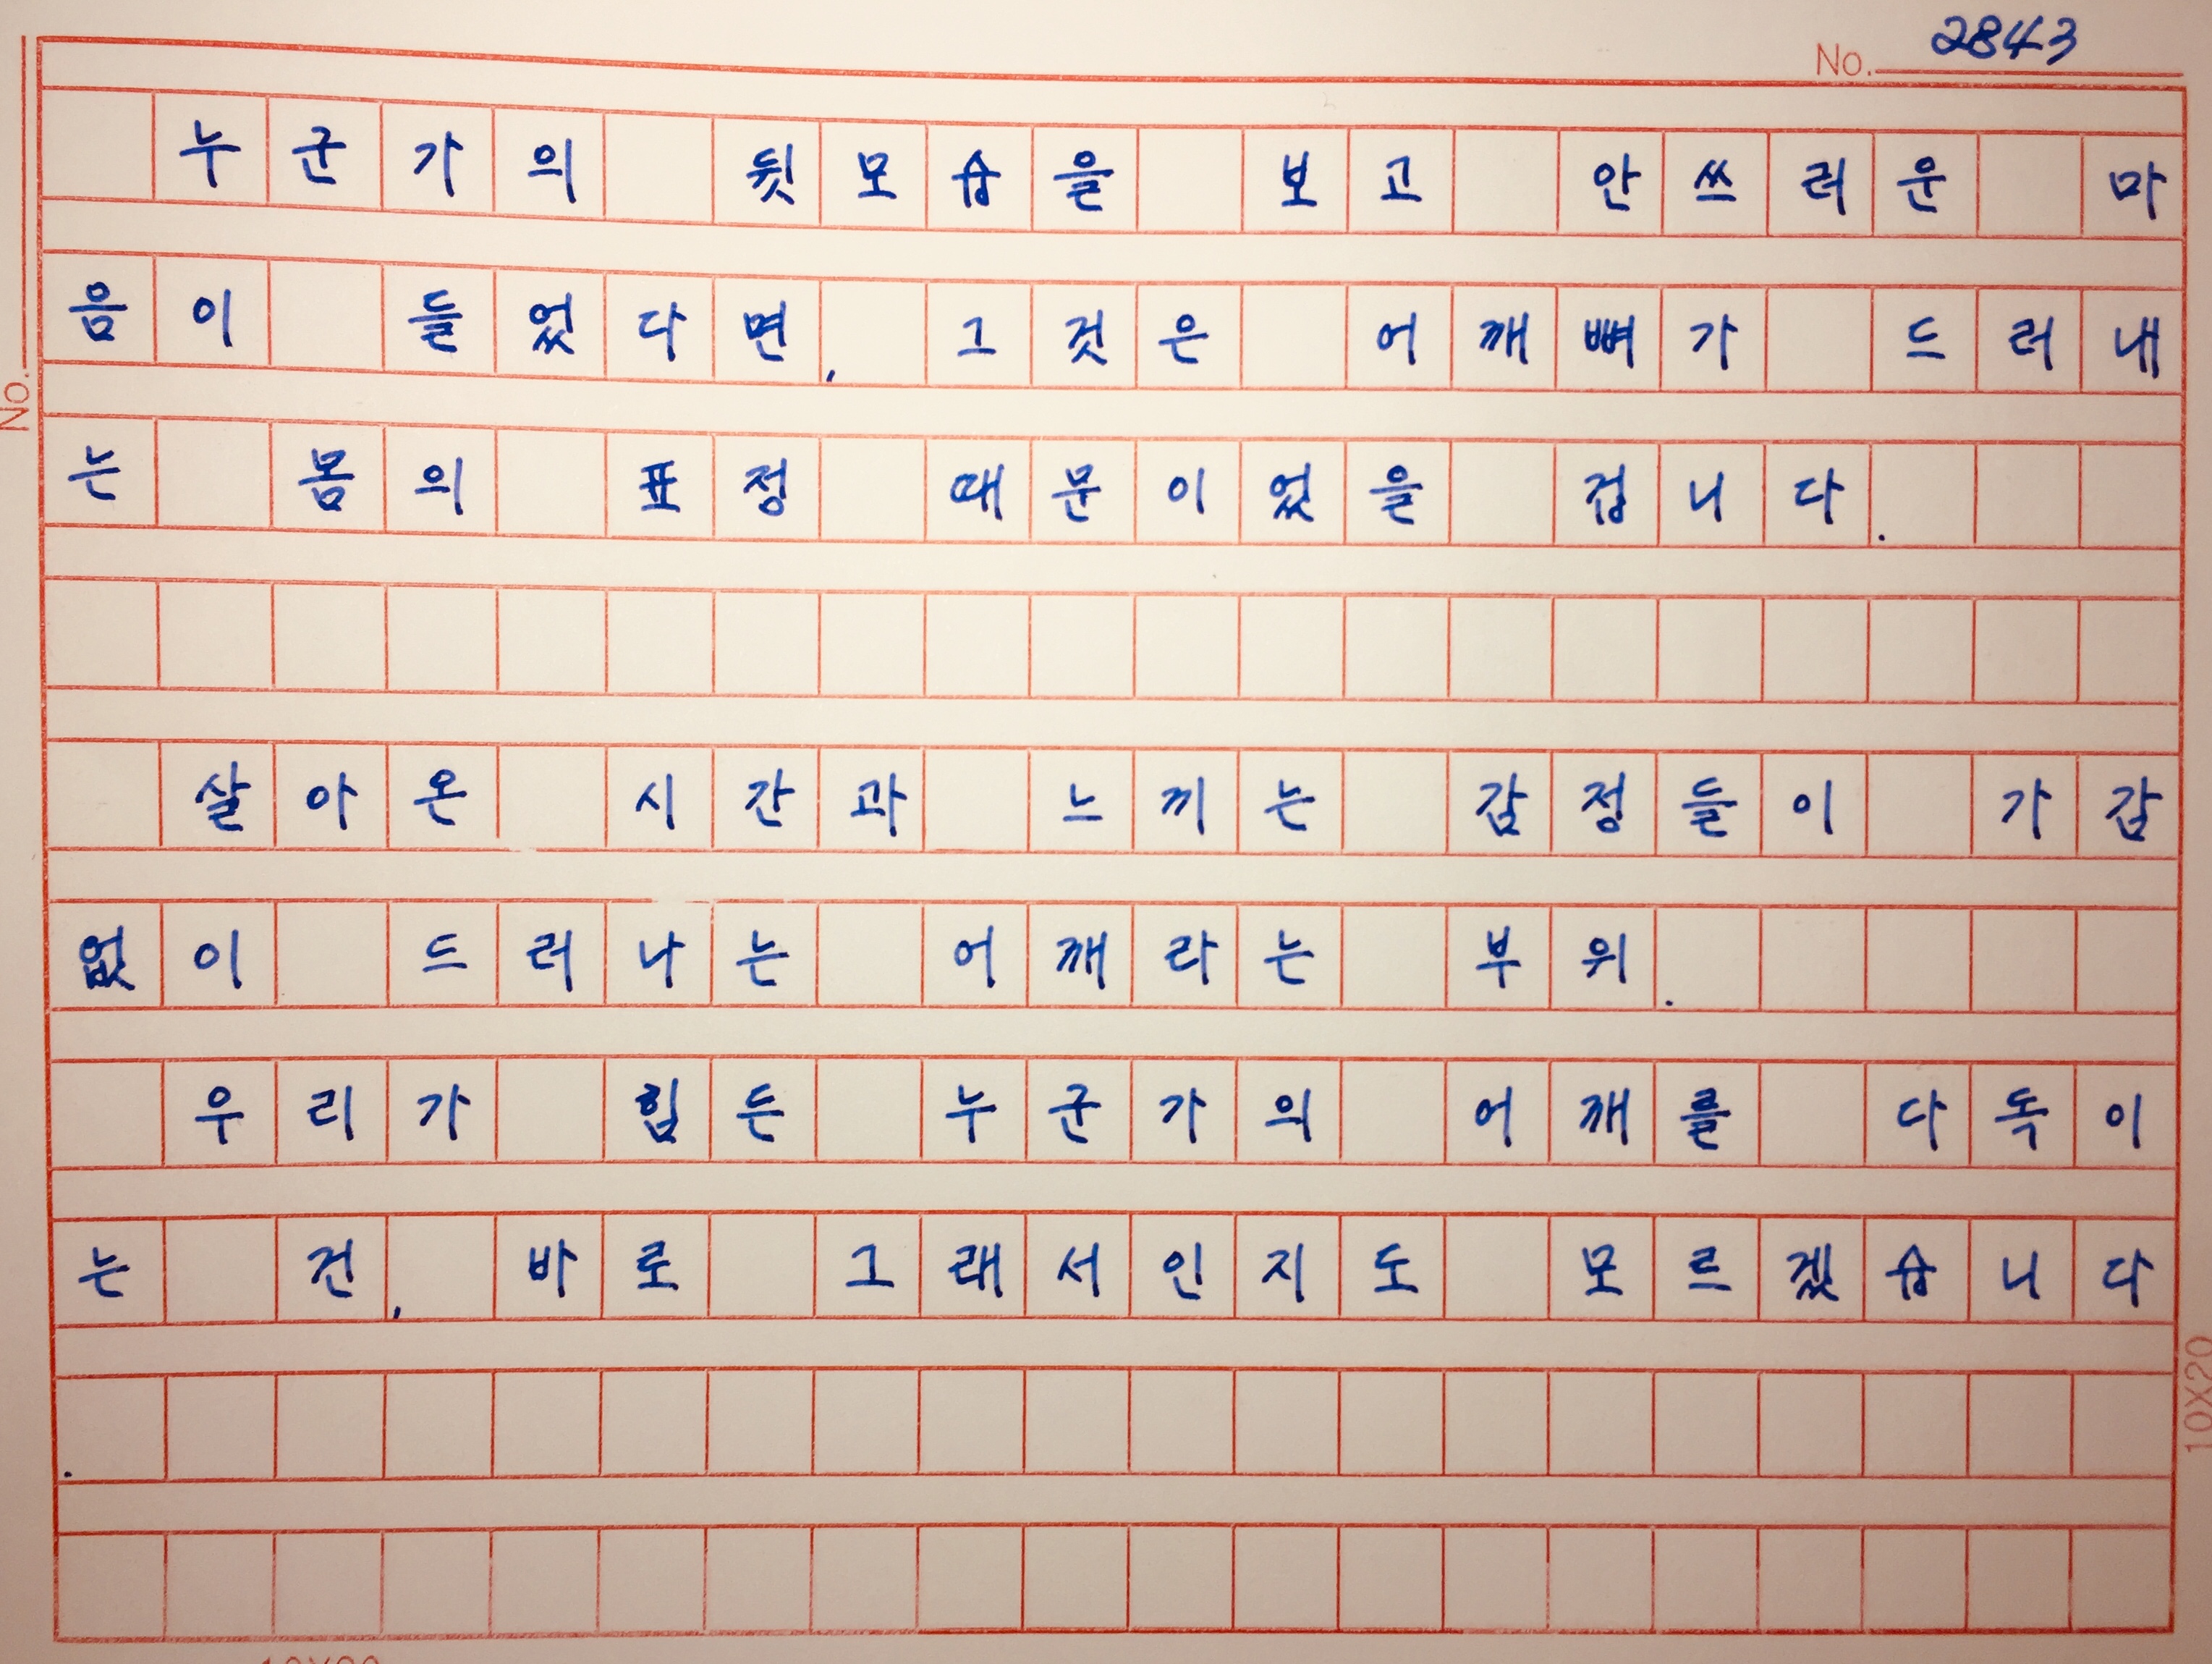 No. 2843
누군가의 뒷모습을 보고 안쓰러운 마
음이 들었다면, 그것은 어깨뼈가 드러내
는 몸의 표정 때문이었을 겁니다.
살아온 시간과 느끼는 감정들이 가감
없이 드러나는 어깨라는 부위.
우리가 힘든 누군가의 어깨를 다독이
는 건, 바로 그래서인지도 모르겠습니다
.
No.
10X20